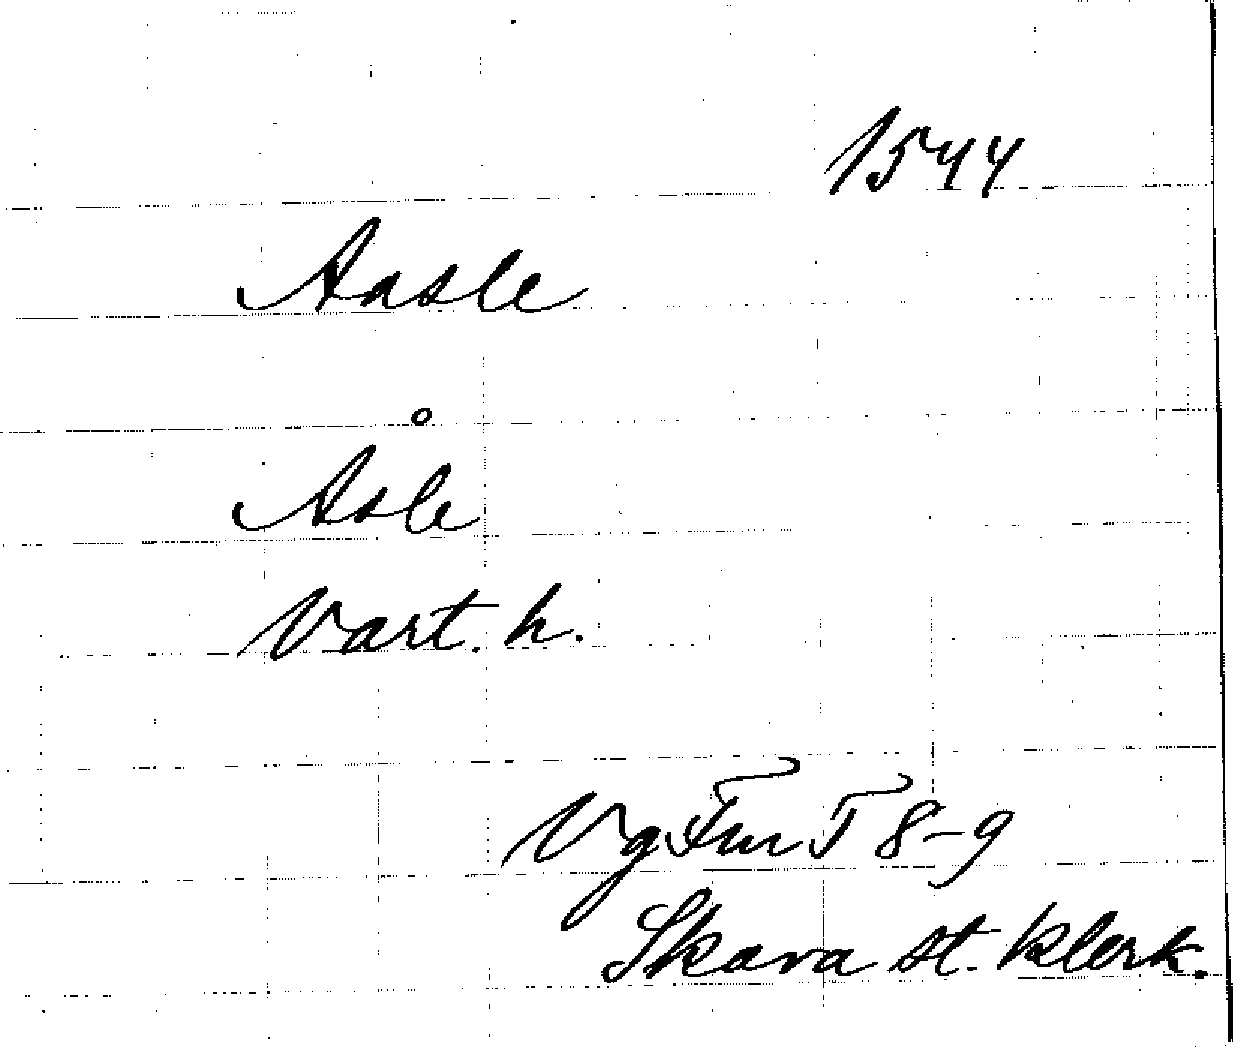 1544
Aasle
Åsle
Vart. h.
Vg Fm T 8-9
Skara st. klerk.